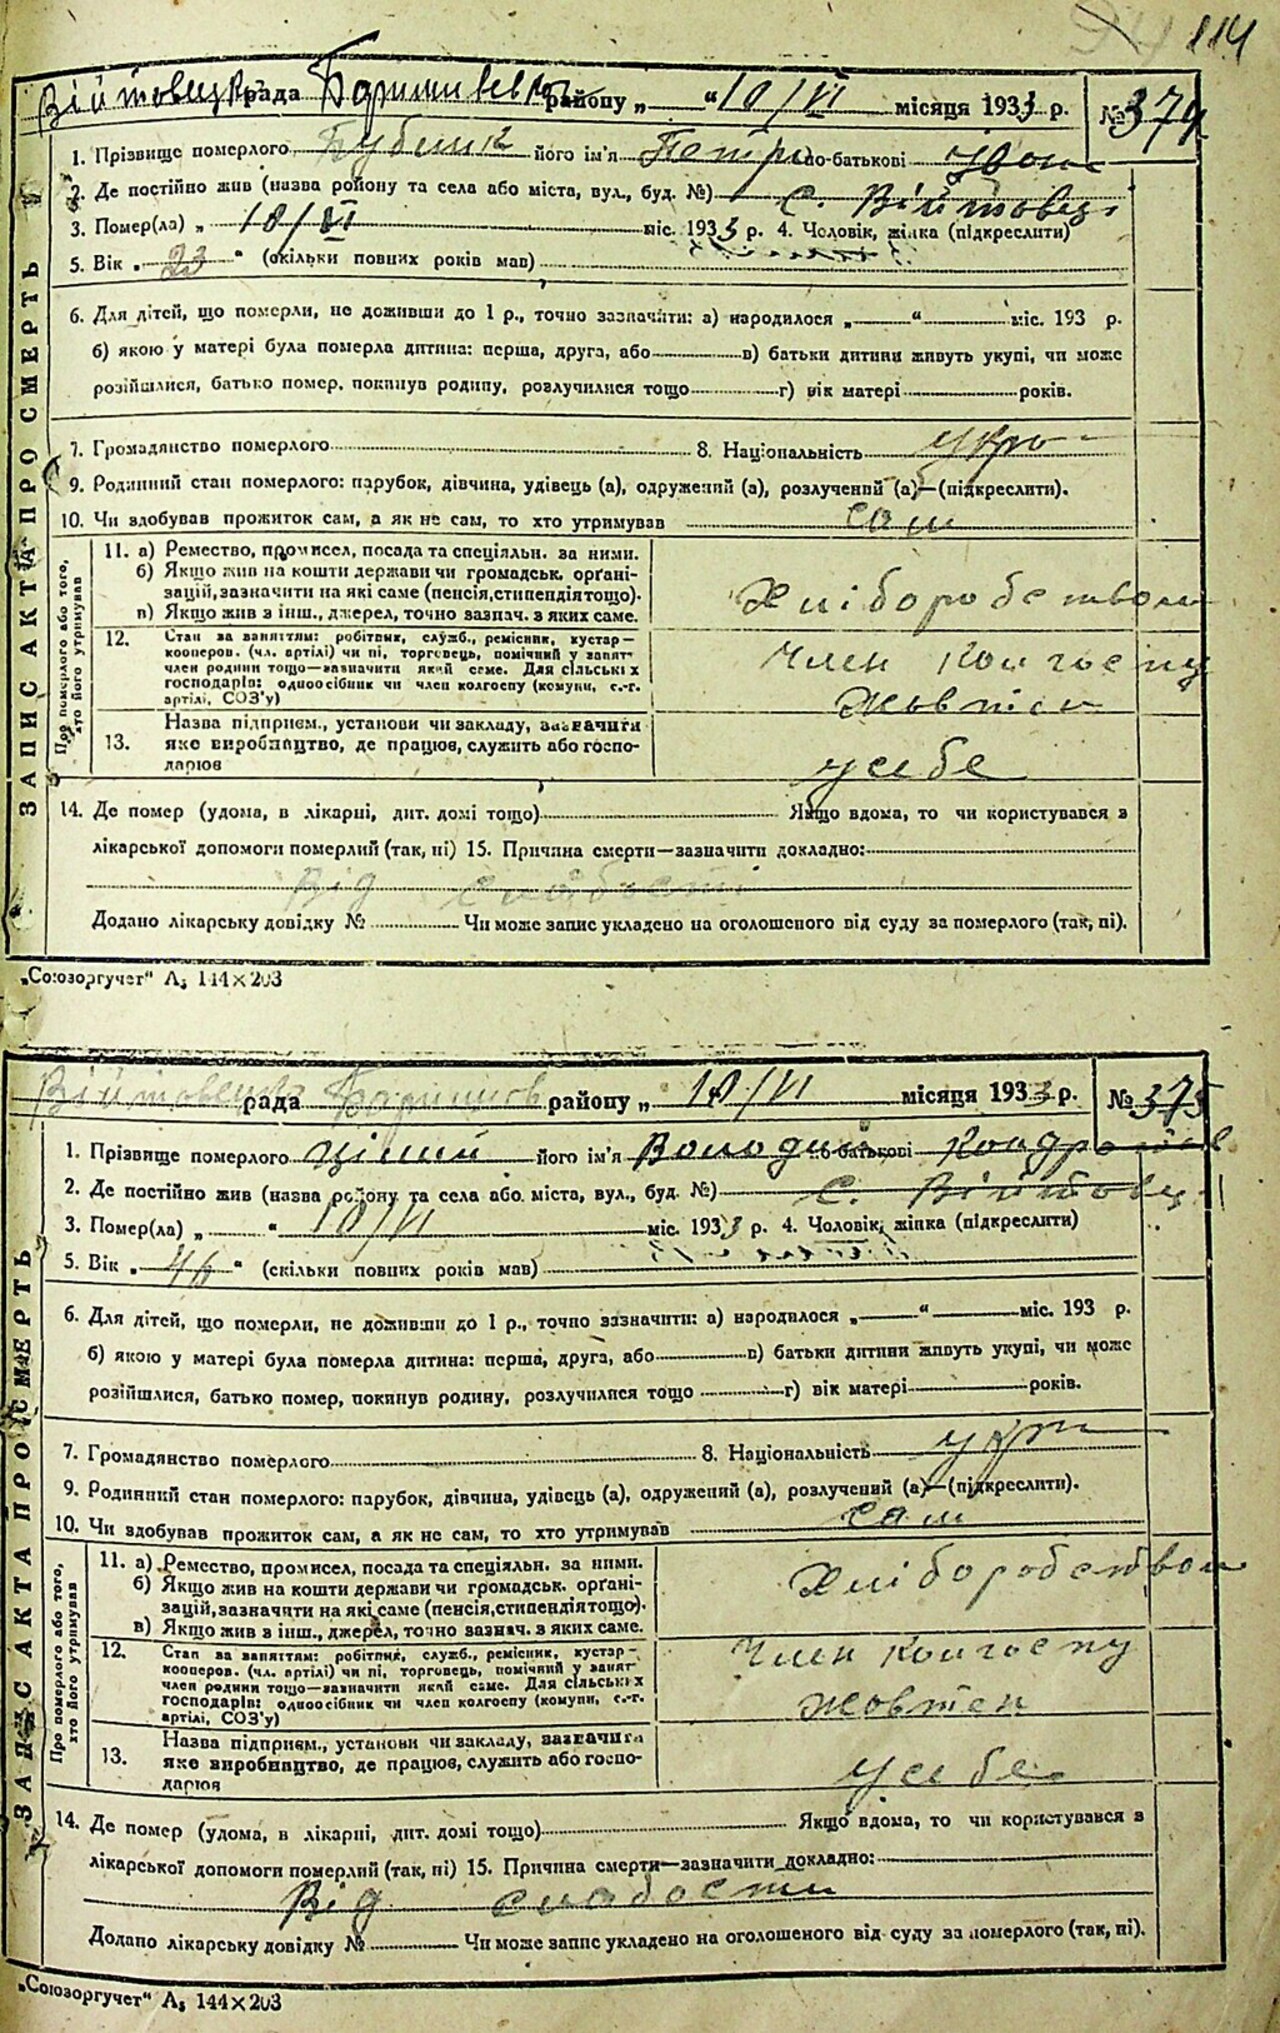 114
Війтовецька рада Баришивсько району „ “ 10/VI місяця 1933 р. № 374
ЗАПИС АКТА ПРО СМЕРТЬ
1. Прізвище померлого його ім'я Петро по-батькові
2. Де постійно жив (назва району та села або міста, вул., буд. №) с. Війтовці
3. Помер(ла) „ 10/VI міс. 1933 р. 4. Чоловік, жінка (підкреслити)
5. Вік „ 23 “ (скільки повних років мав)
6. Для дітей, що померли, не доживши до 1 р., точно зазначити: а) народилося „ “ міс. 193 р.
б) якою у матері була померла дитина: перша, друга, або в) батьки дитини живуть укупі, чи може
розійшлися, батько помер, покинув родину, розлучилися тощо г) вік матері років.
7. Громадянство померлого 8. Національність укра
9. Родинний стан померлого: парубок, дівчина, удівець (а), одружений (а), розлучений (а)—(підкреслити).
10. Чи здобував прожиток сам, а як не сам, то хто утримував сам
Про померлого або того, хто його утримував
11. а) Ремество, промисел, посада та спеціяльн. за ними.
б) Якщо жив на кошти держави чи громадськ. орґані-
зацій, зазначити на які саме (пенсія, стипендія тощо).
в) Якщо жив з інш., джерел, точно зазнач. з яких саме.
Хліборобством
12. Стан за заняттям: робітник, служб., ремісник, кустар—
кооперов. (чл. артілі) чи ні, торговець, помічний у занят—
член родини тощо—зазначити який саме. Для сільських
господарів: одноосібник чи член колгоспу (комуни, с.-г.
артілі, СОЗ'у)
Член колгоспу
Жовтень
13. Назва підприєм., установи чи закладу, зазначити
яке виробництво, де працює, служить або госпо-
дарює
у себе
14. Де помер (удома, в лікарні, дит. домі тощо) Якщо вдома, то чи користувався з
лікарської допомоги померлий (так, ні) 15. Причина смерти—зазначити докладно:
Від слабості
Додано лікарську довідку № Чи може запис укладено на оголошеного від суду за померлого (так, ні).
„Союзоргучет“ А₅ 144×203
Війтовецька рада Баришів району „ 10/VI місяця 1933 р. № 375
ЗАПИС АКТА ПРО СМЕРТЬ
1. Прізвище померлого його ім'я Володим по-батькові Кондратов
2. Де постійно жив (назва району та села або міста, вул., буд. №) с. Війтовці
3. Помер(ла) „ “ 10/VI міс. 1933 р. 4. Чоловік, жінка (підкреслити)
5. Вік „ 46 “ (скільки повних років мав)
6. Для дітей, що померли, не доживши до 1 р., точно зазначити: а) народилося „ “ міс. 193 р.
б) якою у матері була померла дитина: перша, друга, або в) батьки дитини живуть укупі, чи може
розійшлися, батько помер, покинув родину, розлучилися тощо г) вік матері років.
7. Громадянство померлого 8. Національність укр
9. Родинний стан померлого: парубок, дівчина, удівець (а), одружений (а), розлучений (а)—(підкреслити).
10. Чи здобував прожиток сам, а як не сам, то хто утримував сам
Про померлого або того, хто його утримував
11. а) Ремество, промисел, посада та спеціяльн. за ними.
б) Якщо жив на кошти держави чи громадськ. орґані-
зацій, зазначити на які саме (пенсія, стипендія тощо).
в) Якщо жив з інш., джерел, точно зазнач. з яких саме.
Хліборобством
12. Стан за заняттям: робітник, служб., ремісник, кустар—
кооперов. (чл. артілі) чи ні, торговець, помічний у занят—
член родини тощо—зазначити який саме. Для сільських
господарів: одноосібник чи член колгоспу (комуни, с.-г.
артілі, СОЗ'у)
Член колгоспу
Жовтень
13. Назва підприєм., установи чи закладу, зазначити
яке виробництво, де працює, служить або госпо-
дарює
у себе
14. Де помер (удома, в лікарні, дит. домі тощо) Якщо вдома, то чи користувався з
лікарської допомоги померлий (так, ні) 15. Причина смерти—зазначити докладно:
Від слабости
Додано лікарську довідку № Чи може запис укладено на оголошеного від суду за померлого (так, ні).
„Союзоргучет“ А₅ 144×203